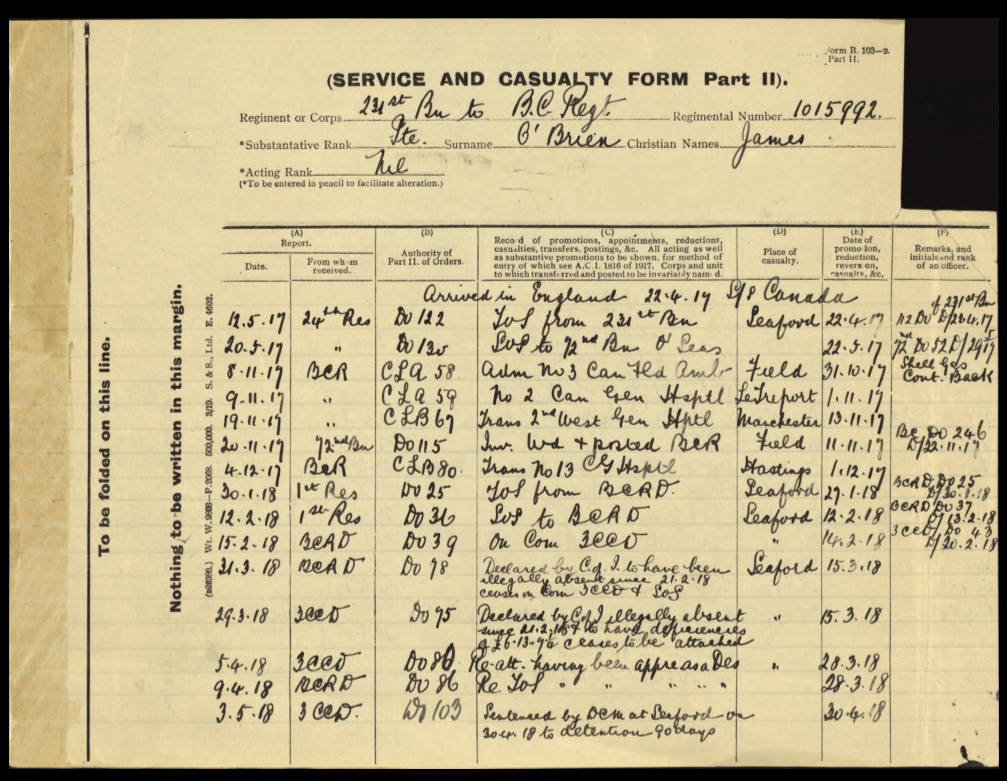 Form B. 103—2.
Part II.
(SERVICE AND CASUALTY FORM Part II).
Regiment or Corps 231st Bn to B.C. Regt Regimental Number 1015992.
*Substantative Rank Pte. Surname O'Brien Christian Names James
*Acting Rank Nil
(*To be entered in pencil to facilitate alteration.)
To be folded on this line.
Nothing to be written in this margin.
(A) Report. (B) Authority of Part II. of Orders. (C) Record of promotions, appointments, reductions, casualties, transfers, postings, &c. All acting as well as substantive promotions to be shown, for method of entry of which see A.C.I. 1816 of 1917. Corps and unit to which transferred and posted to be invariably named. (D) Place of casualty. (E) Date of promotion, reduction, reversion, casualty, &c. (F) Remarks, and initials and rank of an officer.
Date. From whom received.
Arrived in England 22.4.17 S/S Canada
12.5.17 24th Res Do 122 ToS from 231st Bn Seaford 22.4.17 of 231st Bn 112 Do D/28.4.17
20.5.17 " Do 130 SoS to 72nd Bn O'Seas 22.5.17 72nd Do 52 D/2917
8.11.17 BCR CLA 58. Adm No 3 Can Fld Amb Field 31.10.17 Shell Gas Cont. Back
9.11.17 " CLA 59 No 2 Can Gen Hsptl LeTreport 1.11.17
19.11.17 " CLB 67 Trans 2nd West Gen Hptl Manchester 13.11.17
20.11.17 72nd Bn Do 115 Inv. Wd & posted BCR Field 11.11.17 BC. DO 246 D/22.11.17
4.12.17 BCR CLB 80. Trans No 13 CG Hsptl Hastings 1.12.17
30.1.18 1st Res Do 25 ToS from BCRD. Seaford 29.1.18 BCRD, Do 25 D/30.1.18
12.2.18 1st Res Do 36 SoS to BCRD Seaford 12.2.18 BCRD Do 37 D/13.2.18
15.2.18 BCRD Do 39 On Com 3CCD " 14.2.18 3CCD/Do 43 D/20.2.18
31.3.18 BCRD Do 78 Declared by C. of I. to have been Seaford 15.3.18
illegally absent since 21.2.18
ceases on Com 3CCD & SoS
29.3.18 3CCD Do 75 Declared by C of I illegally absent " 15.3.18
since 21.2.18 & to have deficiencies
of £6-13-9 & ceases to be attached
5.4.18 3CCD Do 80 Re-att. having been appre as a Des " 28.3.18
9.4.18 BCRD Do 86 Re. ToS " " " " " 28.3.18
3.5.18 3CCD. Do 103 Sentenced by DCM at Seaford on 30.4.18
30.4.18 to detention 90 days